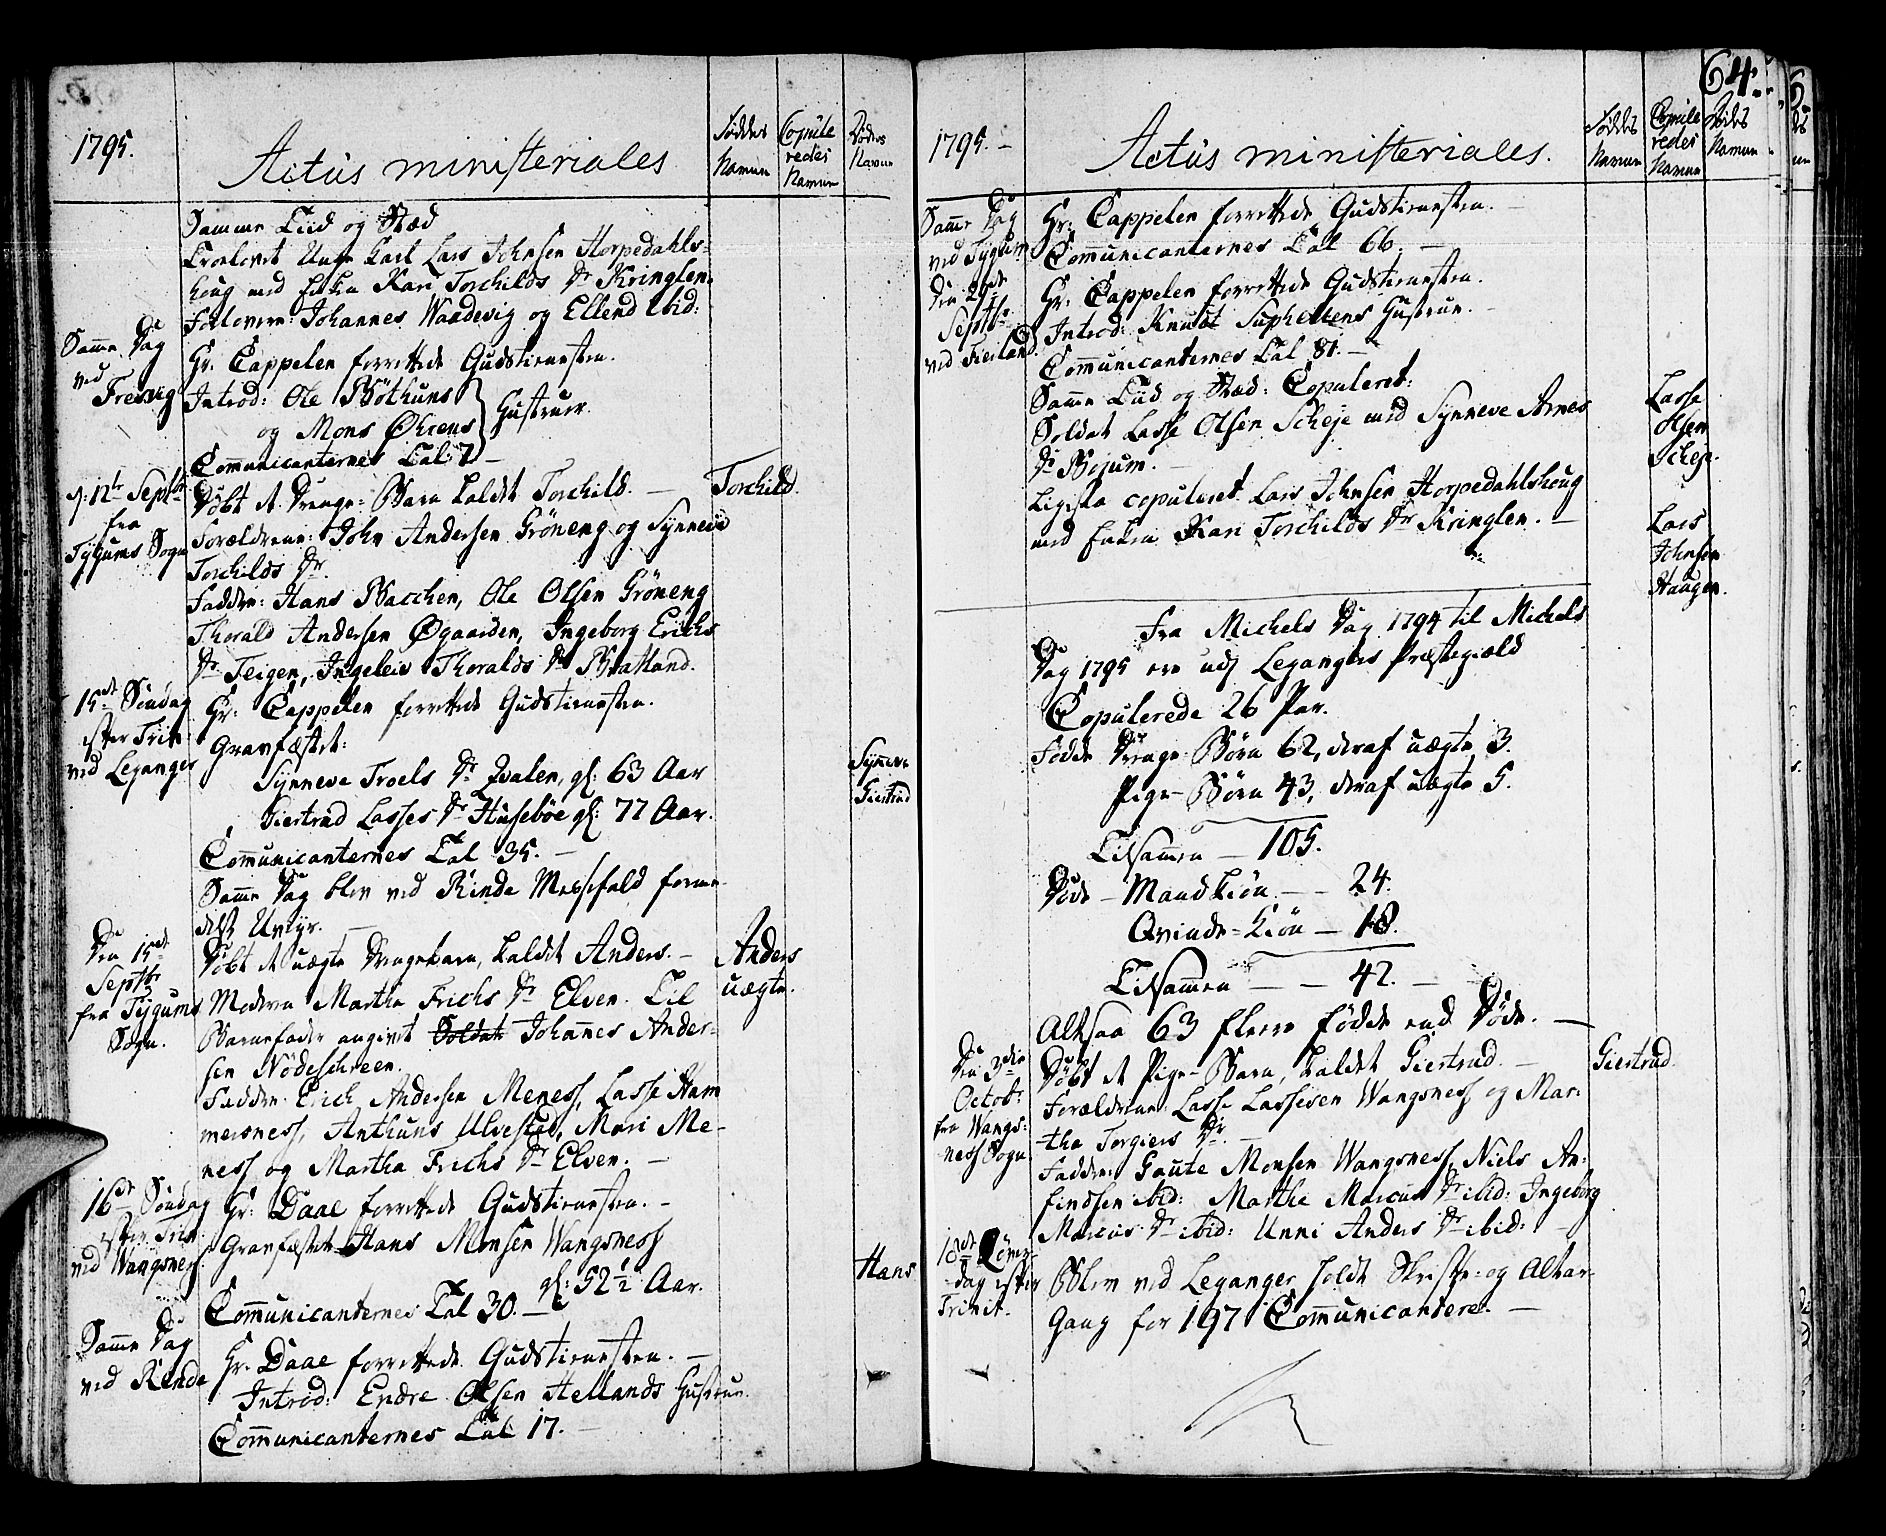 1795.
Actus ministeriales
Føddes Navne
Copuleredes Navne
Dødes Navne
Samme Tiid og Stæd
Trolovet Unge Karl Lars Johnsen Horpedahls-
houg med Enken Kari Torchilds Dr Kringlen.
Forlovere: Johannes Waadevig og Ellend ibid:
Samme Dag
ved
Fresvig
Hr: Cappelen forrettede Gudstienesten.
Introd: Ole Bøthuns
og Mons Øhrens
Hustruer.
Communicanternes Tal 7 –
d: 12te Septbr
fra
Tygums Sogn
Døbt et Drenge-Barn kaldet Torchild. –
Torchild.
Forældrene: John Andersen Grøneng og Synneve
Torchilds Dr.
Faddere: Hans Bacchen, Ole Olsen Grøneng
Thorald Andersen Øgaarden, Ingeborg Erichs
Dr Teigen, Ingeleiv Thoralds Dr Bratland.
15de Søndag
efter Trin:
ved Leganger
Hr: Cappelen forrettede Gudstienesten.
Gravfæstet:
Synneve Troels Dr Qvalen, gl: 63 Aar
Synneve
Giertrud Lasses Dr Husebøe gl: 77 Aar.
Giertrud
Communicanternes Tal 35. –
Samme Dag blev ved Rinde Messefald forme-
delst Uveyr.
Den 15de
Septbr
fra Tygums
Sogn.
Døbt et uægte Drengebarn, kaldet Anders. –
Anders
uægte.
Moderen Martha Erichs Dr Elven. Til
Barnefader angivet Soldat Johannes Ander-
sen Nødeschreen.
Faddere: Erich Andersen Meness, Lasse Ham
mersness, Anthuns Ulvestad, Mari Me-
ness og Martha Erichs Dr Elven. –
16de Søndag
efter Trin:
ved Wangsness.
Hr: Daae forrettede Gudstienesten. –
Gravfæstet Hans Monsen Wangsness
gl: 52 1/2 Aar.
Hans
Communicanternes Tal 30. –
Samme Dag
ved Rinde
Hr: Daae forrettede Gudstienesten. –
Introd: Endre Olsen Hellands Hustrue.
Communicanternes Tal 17. –
64.
1795. –
Actus ministeriales.
Føddes Navne
Copuleredes Navne
Dødes Navne
Samme Dag
ved Tygum
Hr: Cappelen forrettede Gudstienesten. –
Communicanternes Tal 66. –
Den 29de
Septbr
ved Fierland.
Hr: Cappelen forrettede Gudstienesten.
Introd: Knudt Suphellens Hustrue. –
Communicanternes Tal 81. –
Samme Tiid og Stæd: Copuleret:
Soldat Lasse Olsen Scheje med Synneve Arnes
Dr Bojum. –
Lasse
Olsen
Scheje.
Ligesaa copuleret Lars Johnsen Horpedahlshoug
med Enken Kari Torchilds Dr Kringlen. –
Lars
Johnsen
Haugen.
Fra Michels Dag 1794 til Michels
Dag 1795 ere udj Legangers Præstegiæld
Copulerede 26 Par.
Fødde Drenge-Børn 62, deraf uægte 3.
Pige-Børn 43, deraf uægte 5.
Tilsammen – 105.
Døde – Mandkiøn – – 24.
Qvinde-kiøn – 18.
Tilsammen – – 42. –
Altsaa 63 flere fødde end Døde. –
Den 3die
Octobr:
fra Wangs-
ness Sogn
Døbt et Pige-Barn, kaldet Giertrud. –
Giertrud
Forældrene: Lasse Lassesen Wangsness og Mar-
tha Torgiers Dr. –
Faddere: Gaute Monsen Wangsness, Niels An-
findsen ibid: Marthe Marcus Dr ibid: Ingeborg
Marcus Dr ibid: Unni Anders Dr ibid: –
18de Løver-
dag efter
Trinit.
Blev ved Leganger holdt Skrifte- og Altar-
Gang for 197 Communicantere. –